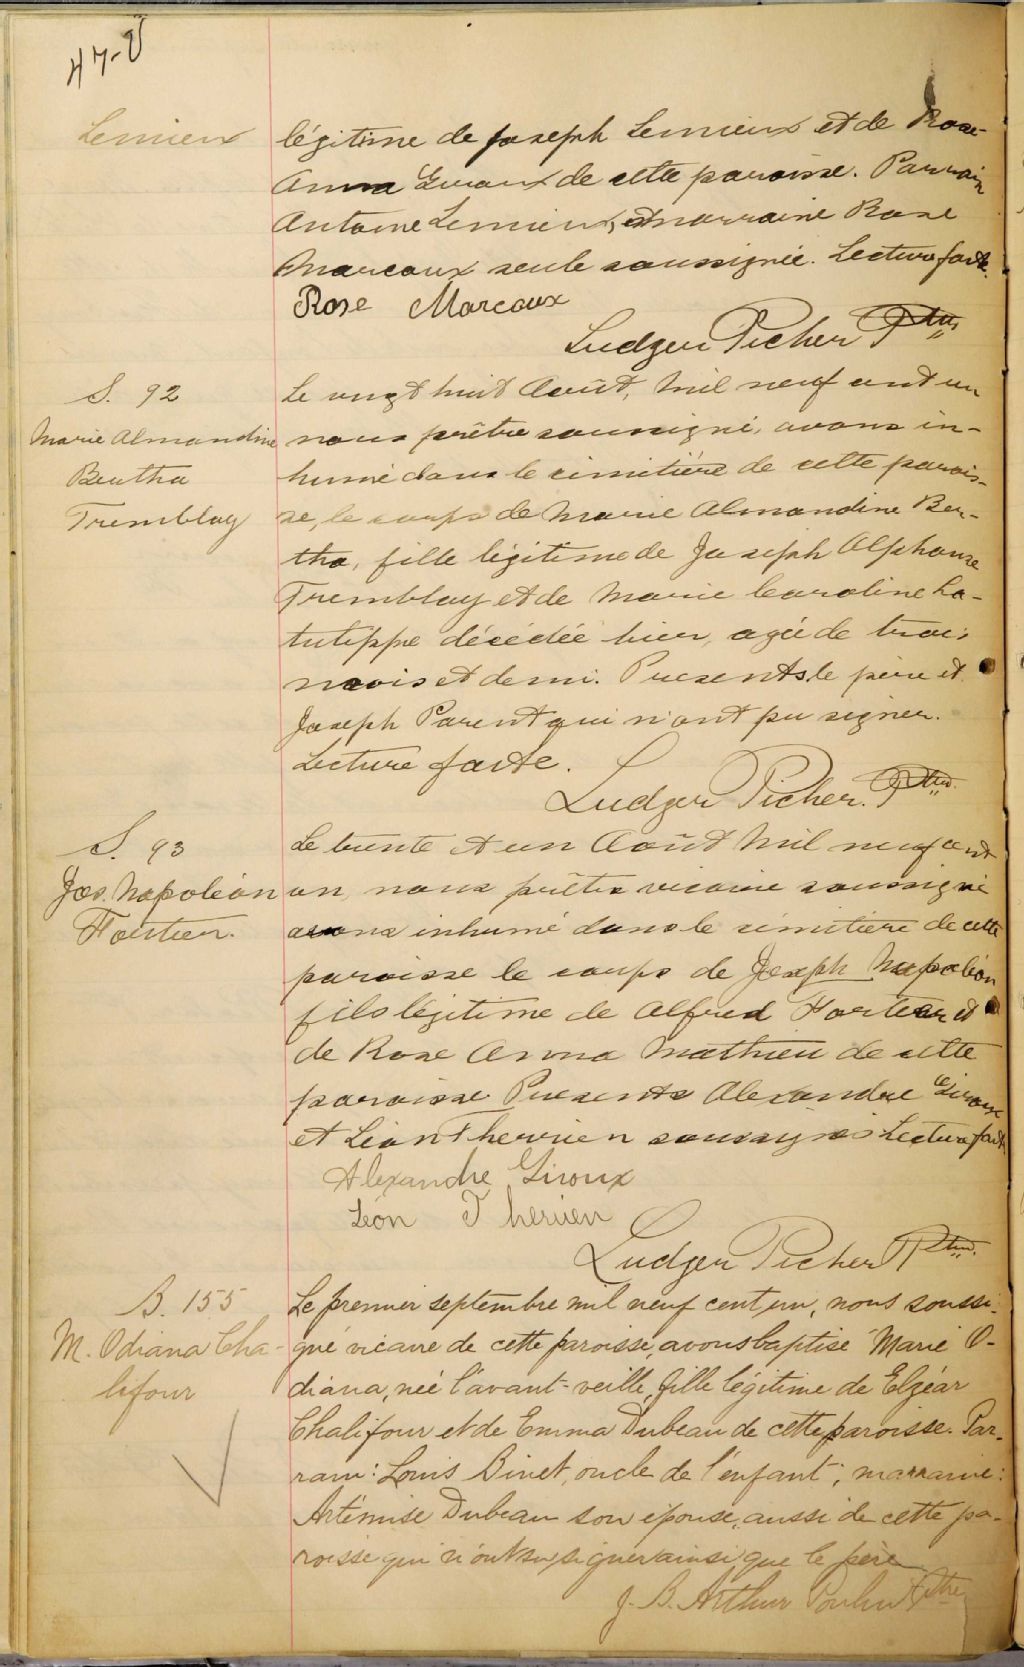 47-V
Lemieux
légitime de Joseph Lemieux et de Rose-
Anna Giroux de cette paroisse. Parrain
Antoine Lemieux, et marraine Rose
Marcoux seule soussignée. Lecture faite.
Rose Marcoux
Ludger Picher Ptre
S. 92
Marie Almandine
Bertha
Tremblay
Le vingt huit Août, mil neuf cent un
nous prêtre soussigné, avons in-
humé dans le cimitière de cette parois-
se, le corps de Marie Almandine Ber-
tha, fille légitime de Joseph Alphonse
Tremblay et de Marie Caroline La-
tulippe décédée hier, agée de trois
mois et demi. Presents, le père et
Joseph Parent qui n'ont pu signer.
Lecture faite.
Ludger Picher. Ptre.
S. 93
Jos. Napoléon
Fortier.
Le trente et un Août mil neuf cent
un, nous prêtre vicaire soussigné
avons inhumé dans le cimitière de cette
paroisse le corps de Joseph Napoléon
fils légitime de Alfred Fortier et
de Rose Anna Mathieu de cette
paroisse Presents Alexandre Giroux
et Léon Therrien soussignés Lecture faite
Alexandre Giroux
Léon Therrien
Ludger Picher Ptre.
B. 155
M. Odiana Cha-
lifour
Le premier septembre mil neuf cent un, nous soussi-
gné vicaire de cette paroisse, avons baptisé Marie O-
diana, née l'avant-veille, fille légitime de Elzéar
Chalifour et de Emma Dubeau de cette paroisse. Par-
rain: Louis Binet, oncle de l'enfant; marraine:
Artémise Dubeau son épouse, aussi de cette pa-
roisse qui n'ont su signer ainsi que le père
J. B. Arthur Poulin Ptre